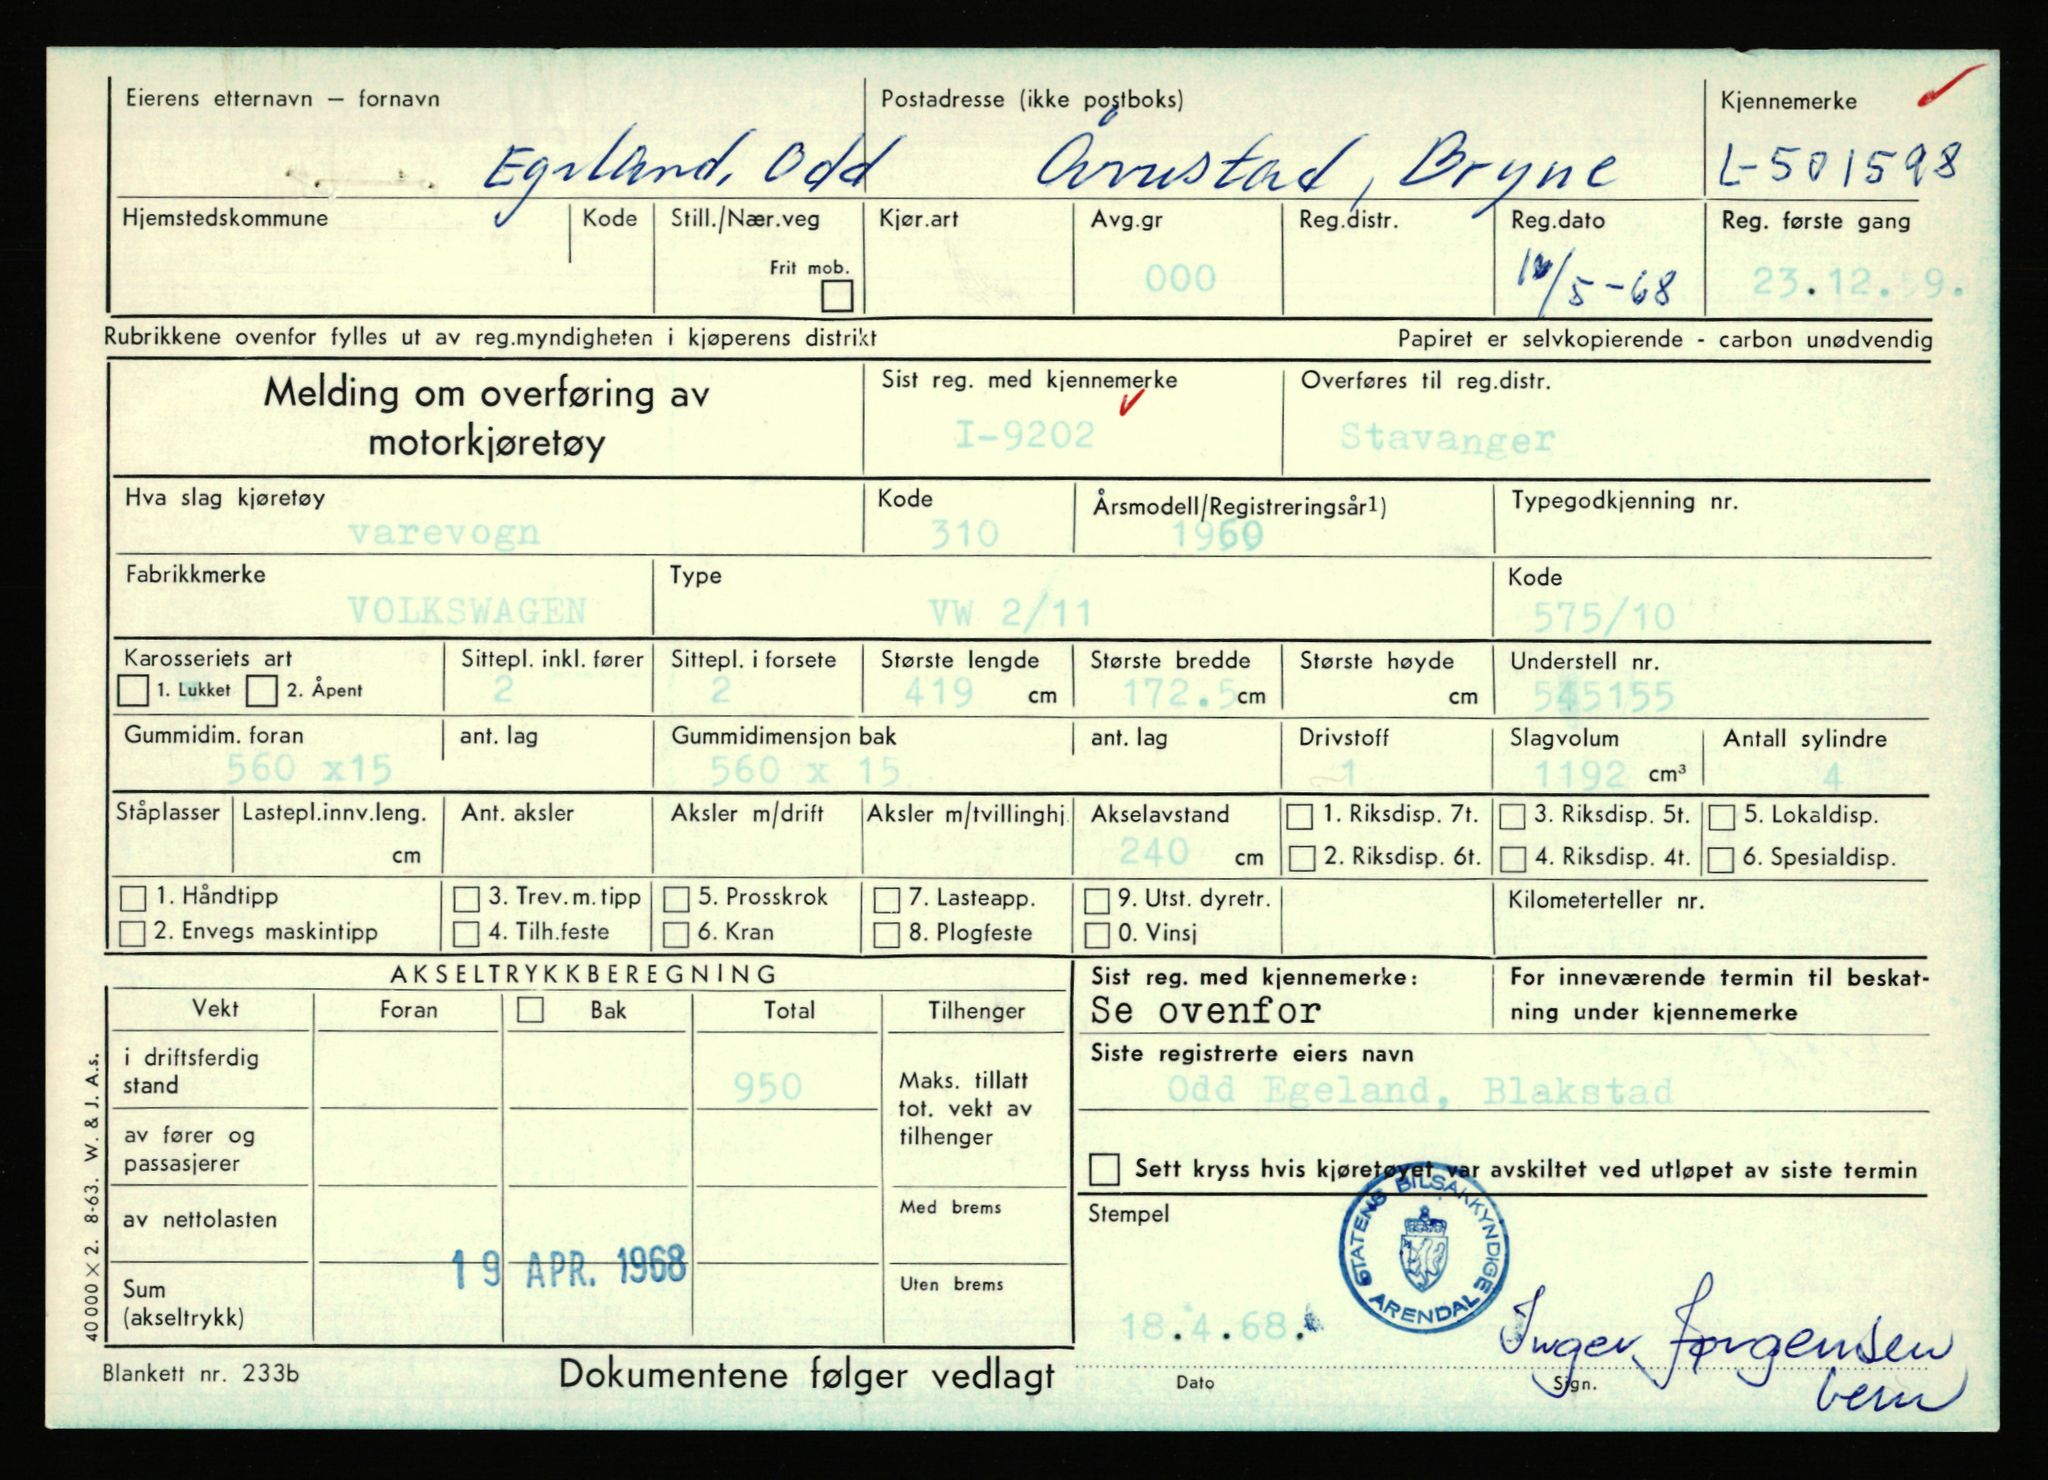 Eierens etternavn – fornavn
Postadresse (ikke postboks)
Kjennemerke
Egeland, Odd
Bryne
L-501598
Hjemstedskommune
Kode
Still./Nær.veg
Frit mob.
Kjør.art
Avg.gr
000
Reg.distr.
Reg.dato
/5-68
Reg. første gang
23.12.59.
Rubrikkene ovenfor fylles ut av reg.myndigheten i kjøperens distrikt
Papiret er selvkopierende - carbon unødvendig
Melding om overføring av
motorkjøretøy
Sist reg. med kjennemerke
I-9202
Overføres til reg.distr.
Stavanger
Hva slag kjøretøy
varevogn
Kode
310
Årsmodell/Registreringsår1)
1960
Typegodkjenning nr.
Fabrikkmerke
VOLKSWAGEN
Type
VW 2/11
Kode
575/10
Karosseriets art
1. Lukket 2. Åpent
Sittepl. inkl. fører
2
Sittepl. i forsete
2
Største lengde
419 cm
Største bredde
172.5 cm
Største høyde
cm
Understell nr.
545155
Gummidim. foran
560 x15
ant. lag
Gummidimensjon bak
560 x 15
ant. lag
Drivstoff
1
Slagvolum
1192 cm³
Antall sylindre
4
Ståplasser
Lastepl.innv.leng.
cm
Ant. aksler
Aksler m/drift
Aksler m/tvillinghj.
Akselavstand
240 cm
1. Riksdisp. 7t.
2. Riksdisp. 6t.
3. Riksdisp. 5t.
4. Riksdisp. 4t.
5. Lokaldisp.
6. Spesialdisp.
1. Håndtipp
2. Envegs maskintipp
3. Trev.m.tipp
4. Tilh.feste
5. Prosskrok
6. Kran
7. Lasteapp.
8. Plogfeste
9. Utst. dyretr.
0. Vinsj
Kilometerteller nr.
AKSELTRYKKBEREGNING
Vekt
Foran
Bak
Total
Tilhenger
i driftsferdig
stand
950
Maks. tillatt
tot. vekt av
tilhenger
av fører og
passasjerer
av nettolasten
Med brems
Sum
(akseltrykk)
Uten brems
19 APR. 1968
Sist reg. med kjennemerke:
Se ovenfor
For inneværende termin til beskat-
ning under kjennemerke
Siste registrerte eiers navn
Odd Egeland, Blakstad
Sett kryss hvis kjøretøyet var avskiltet ved utløpet av siste termin
Stempel
STATENS BILSAKKYNDIGE
ARENDAL
18.4.68.
Inger Jørgensen
Dato
Sign.
40000×2. 8-63. W. & J. A.s.
Blankett nr. 233b
Dokumentene følger vedlagt